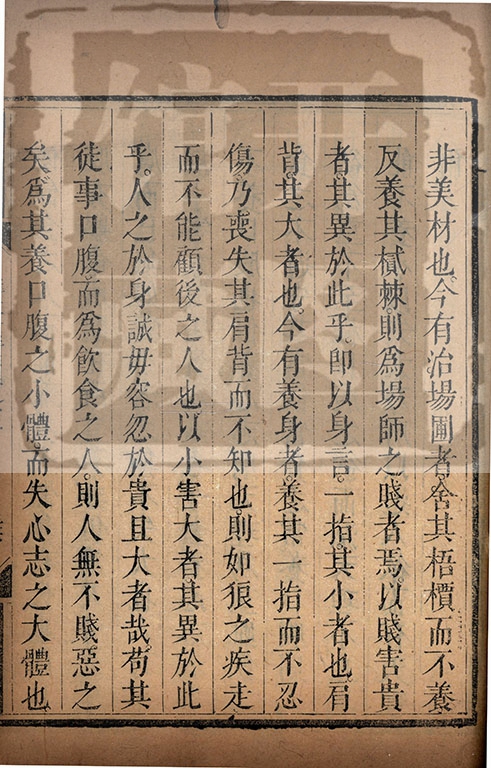 非美材也今有治場圃者舍其梧檟而不養
反養其樲棘則為場師之賤者焉以賤害貴
者其異於此乎即以身言一指其小者也肩
背其大者也今有養身者養其一指而不忍
傷乃喪失其肩背而不知也則如狼之疾走
而不能顧後之人也以小害大者其異於此
乎人之於身誠毋容忽於貴且大者哉苟其
徒事口腹而為飲食之人則人無不賤惡之
矣為其養口腹之小體而失心志之大體也